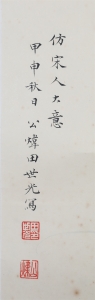 仿宋人大意
甲申秋日公煒田世光寫